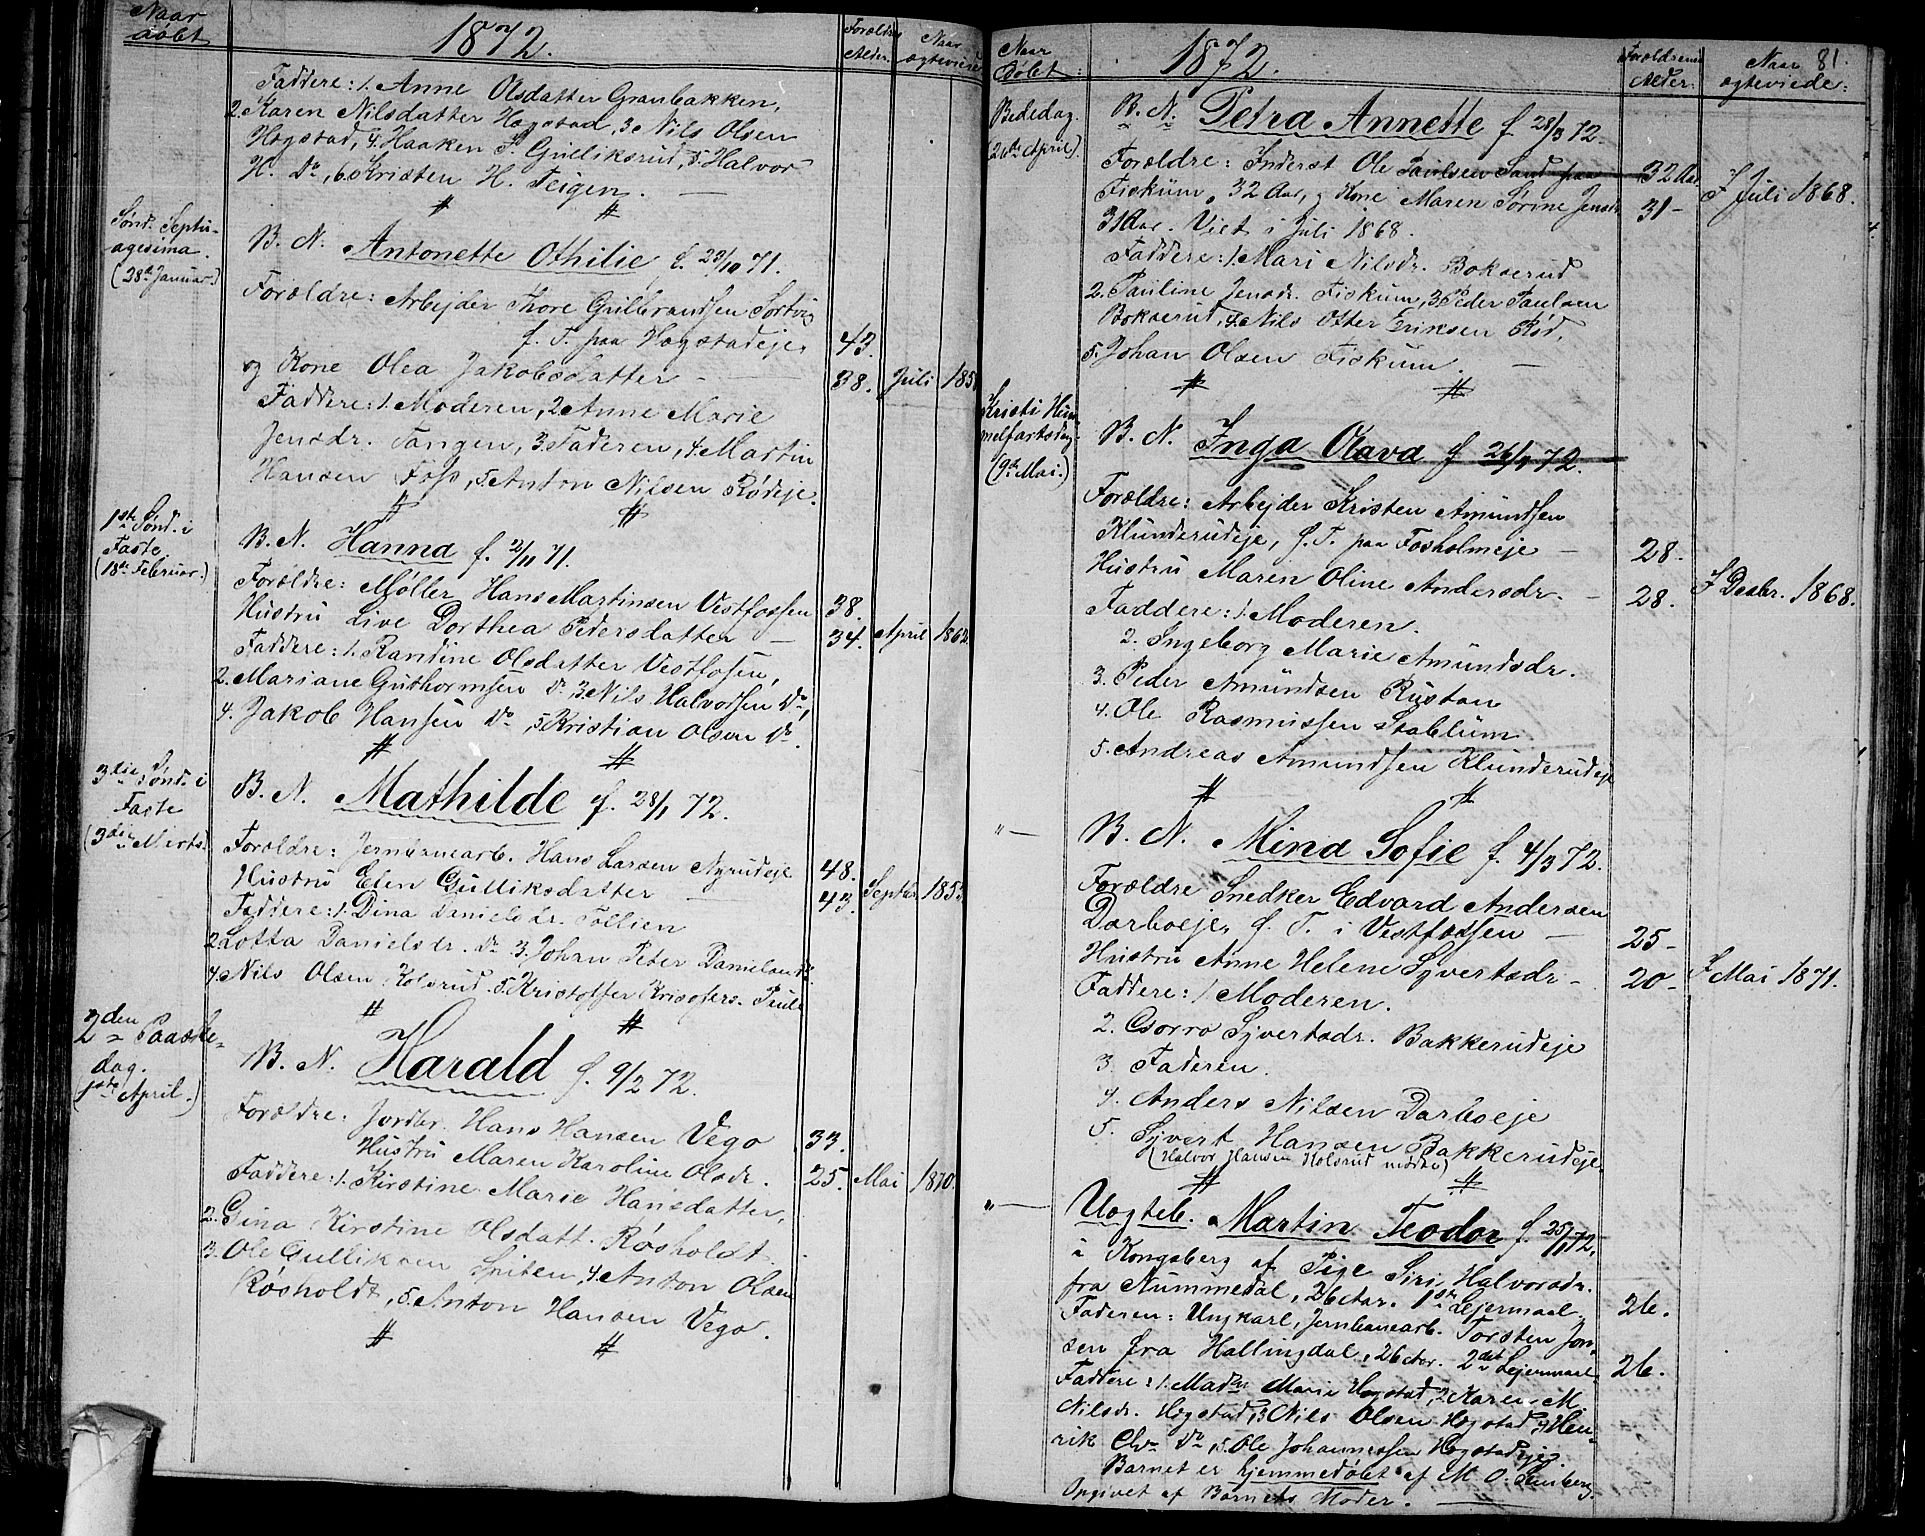 Naar
døbt
1872.
Forældres
Alder
Naar
ægteviede
Faddere: 1. Anne Olsdatter Granbakken,
2. Karen Nilsdatter Hogstad, 3 Nils Olsen
Hogstad, 4. Haaken P. Gulliksrud, 5. Halvor
H. Do, 6. Kristen H. Teigen. —
Sønd. Septu-
agesima.
(28de Januar.)
B. N. Antonette Othilie f. 29/10 71.
Forældre: Arbejder Thore Gulbrandsen Sortvig
f. T. paa Hogstadeje, 43.
og Kone Olea Jakobsdatter — 38. Juli 185
Faddere: 1. Moderen, 2 Anne Marie
Jensdr. Tangen, 3. Faderen, 4. Martin
Hansen Foss, 5. Anton Nilsen Rødeje.
1ste Sønd. i
Faste
(18de Februar.)
B. N. Hanna f. 2/11 71.
Forældre: Møller Hans Martinsen Vestfossen 38.
Hustru Live Dorthea Pedersdatter — 34. April 1862
Faddere: 1. Randine Olsdatter Vestfossen,
2. Mariane Guthormsen Do, 3 Nils Halvorsen Do,
4. Jakob Hansen Do, 5 Kristian Olsen Do.
3die Sønd. i
Faste
(3die Marts)
B. N. Mathilde f. 28/1 72.
Forældre: Jernbanearb. Hans Larsen Nyrudeje 48.
Hustru Elen Gulliksdatter — 43. Septbr 185
Faddere: 1. Dina Danielsdr. Tollien
2. Lotta Danielsdr. Do 3. Johan Peter Danielsen Do
4. Nils Olsen Kolsrud. 5. Kristoffer Kristofers.
2den Paaske-
dag.
(1ste April.)
B. N. Harald f. 9/2 72.
Forældre. Jordbr. Hans Hansen Vego 33.
Hustru Maren Karoline Olsdr. 25. Mai 1870.
Faddere: 1. Kirstine Marie Hansdatter,
2. Gina Kirstine Olsdatt. Røsholdt
3. Ole Gulliksen Spiten, 4. Anton Olsen
Røsholdt, 5. Anton Hansen Vego.
Naar
døbt
1872.
Forældrenes
Alder:
Naar
ægteviede:
81.
Bededag.
(26de April).
B. N. Petra Annette f 28/3 72.
Forældre: Inderst Ole Paulsen Sand paa 32 Aar
Fiskum, 32 Aar, og Kone Maren Sorine Jensdr 31 — F Juli 1868.
31 Aar. Viet i Juli 1868.
Faddere: 1. Mari Nilsdr. Bokserud
2. Pauline Jensdr. Fiskum, 3. Peder Paulsen
Bokserud, 4. Nils Otter Eriksen Rød,
5. Johan Olsen Fiskum. —
Kristi Him-
melfartsdag
(9de Mai.)
B. N. Inga Olava f 26/1 72.
Forældre: Arbejder Kristen Amundsen
Klunderudeje, f. T. paa Fosholmeje — 28.
Hustru Maren Oline Andersdr. — 28. F Decbr. 1868.
Faddere: 1. Moderen.
2. Ingeborg Marie Amundsdr.
3. Peder Amundsen Rustan
4. Ole Rasmussen Stablum
5. Andreas Amundsen Klunderudeje
" —
B. N. Mina Sofie f. 4/3 72.
Forældre Snedker Edvard Andersen
Darboeje, f. T. i Vestfossen — 25 —
Hustru Anne Helene Syvertsdr — 20 — F Mai 1871.
Faddere: 1 Moderen.
2. Syvertsdr. Bakkerudeje
3 Faderen.
4. Anders Nilsen Darboeje
5. Syvert Hansen Bakkerudeje.
(Halvor Hansen Kolsrud)
" —
Uægteb. Martin Teodor f 25/1 72,
i Kongsberg af Pige Siri Halvorsdr.
fra Nummedal, 26 Aar. 1ste Lejermaal. 26.
Faderen: Ungkarl, Jernbanearb. Torsten Jon-
sen fra Hallingdal, 26 Aar. 2det Lejermaal 26.
Faddere: 1. Madm Marie Hogstad, 2 Karen M.
Nilsdr. Hogstad, 3 Nils Olsen Hogstad, 4 Hen-
rik Do, 5. Ole Johannessen Hogstadeje.
Barnet er hjemmedøbt af M. O.
Opgivet af Barnets Moder. —